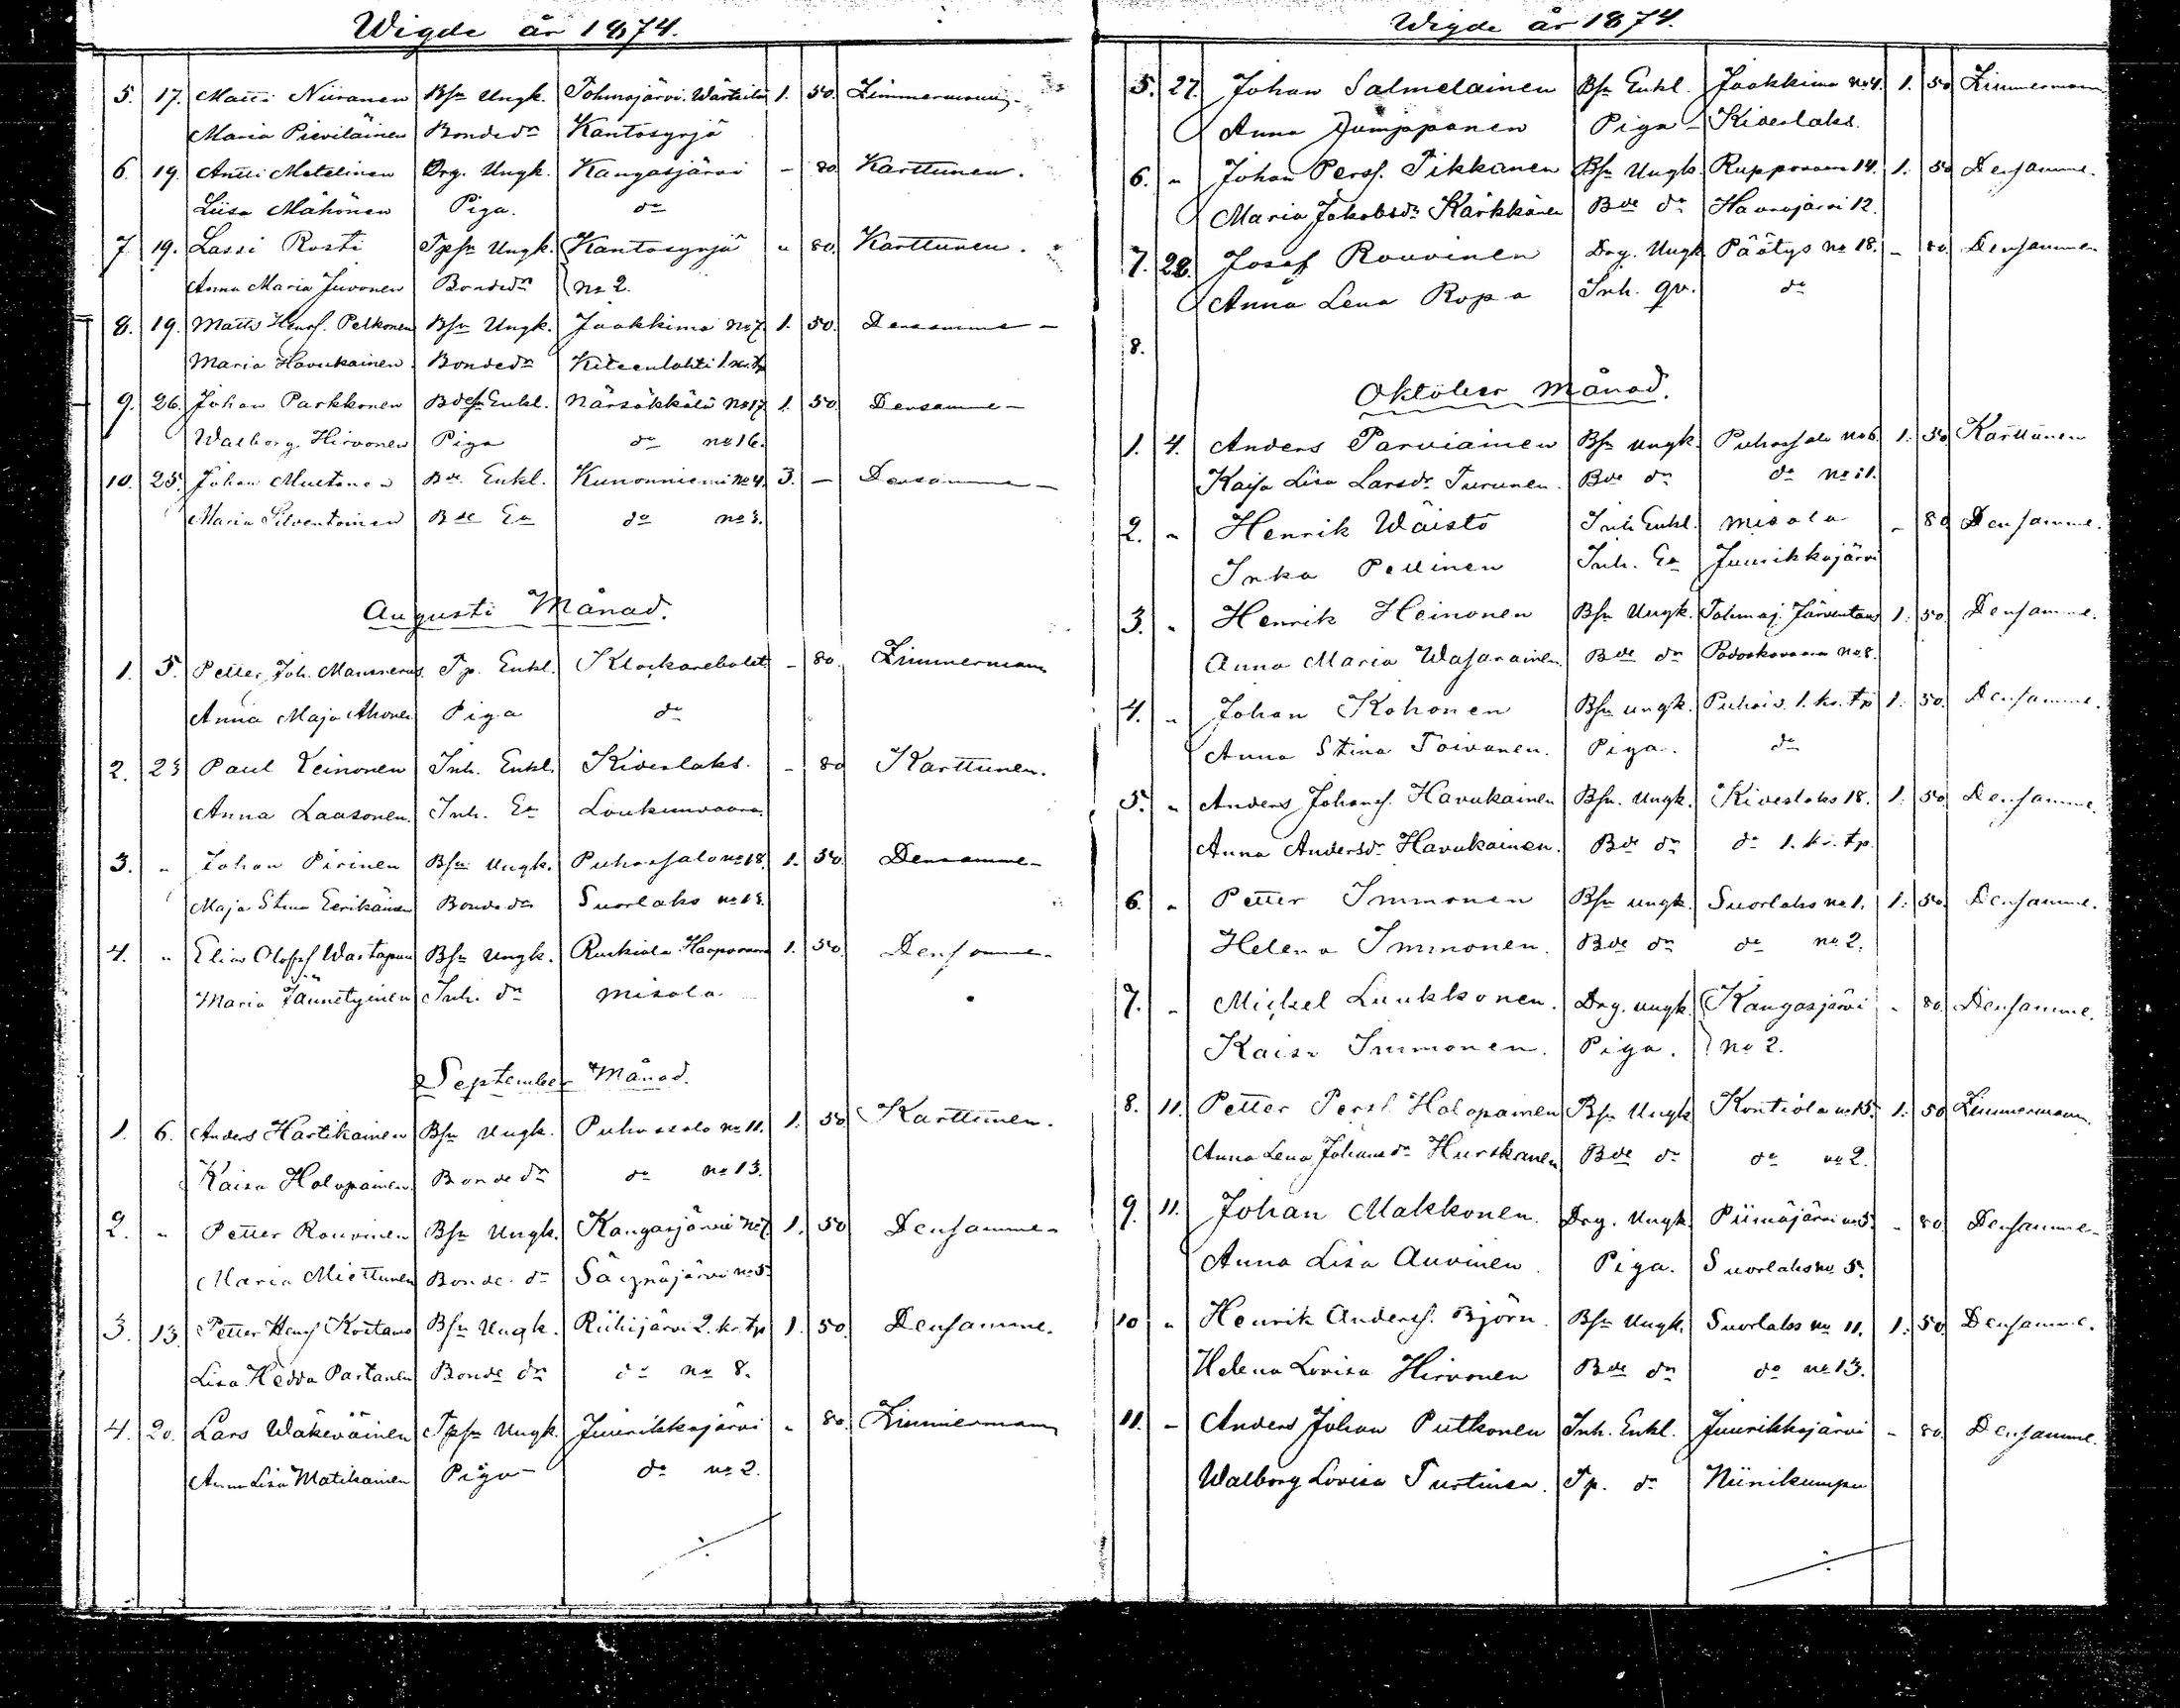 Wigde år 1874.
5. 17. Matti Niiranen Bsn Ungk. Tohmajärvi. Wärtsilä 1. 50. Zimmermann
Maria Pieviläinen Bondedr Kantosyrjä
6. 19. Antti Matelinen Drg. Ungk. Kangasjärvi - 80 Karttunen.
Liisa Mähönen Piga. do
7 19. Lassi Rosti Tpsn Ungk. Kantosyrjä " 80. Karttunen.
Anna Maria Juvonen Bondedr no 2.
8. 19. Matts Henrs. Pelkonen Bsn Ungk. Jaakkima no 7. 1. 50. Densamme -
Maria Havukainen. Bondedr Kiteenlahti 1. kr. tp
9. 26. Johan Parkkonen Bdesn Enkl. Närsäkkälä no 17 1. 50 Densamme -
Walborg Hirvonen Piga do no 16.
10. 25. Johan Mustonen Bde. Enkl. Kunonniemi no 4. 3. - Densamme -
Maria Silventoinen Bde Ea do no 3.
Augusti Månad.
1. 5. Petter Joh. Mannerus. Tp. Enkl. Klockarebolet - 80. Zimmermann
Anna Maja Ahonen Piga do
2. 23 Paul Leinonen Inh. Enkl. Kiveslaks. - 80 Karttunen.
Anna Laasonen. Inh. Ea Loukunvaara.
3. " Johan Pirinen Bsn Ungk. Puhossalo no 18. 1. 50. Densamme -
Maja Stina Eerikäinen Bondedr Suorlaks no 13.
4. " Elias Olofss Wartapuu Bsn Ungk. Ruskiala Haapovaara 1. 50. Densamme -
Maria Jäunetyinen Inh. dr Misola
September Månad.
1. 6. Anders Hartikainen Bsn Ungk. Puhossalo no 11. 1. 50 Karttunen.
Kaisa Holopainen Bonde dr do no 13.
2. " Petter Rouvinen Bsn Ungk. Kangasjärvi no 7. 1. 50 Densamme -
Maria Miettunen Bonde. dr Säynäjärvi no 5.
3. 13. Petter Henrs Kostamo Bsn Ungk. Riihijärvi 2. kr. tp 1. 50. Densamme.
Lisa Hedda Partanen Bonde dr do no 8.
4. 20. Lars Wäkeväinen Tpsn Ungk. Juurikkajärvi " 80. Zimmermann
Anna Lisa Matikainen Piga - do no 2.
Wigde år 1874.
5. 27. Johan Salmelainen Bsn Enkl. Jaakkima no 4. 1. 50 Zimmermann
Anna Jumppanen Piga - Kiveslaks.
6. " Johan Perss. Tikkanen Bsn Ungk. Ruppovaara 14. 1. 50 Densamme.
Maria Jakobsdr Karkkänen Bde dr Havrojärvi 12.
7. 28. Josef Rouvinen Drg. Ungk Päätys no 18. - 80. Densamme
Anna Lena Ropa Inh. qv. do
8.
Oktober Månad.
1. 4. Anders Parviainen Bsn Ungk. Puhossalo no 6. 1. 50 Karttunen
Kajsa Lisa Larsdr Turunen. Bde dr do no 11.
2. " Henrik Wäistö Inh Enkl. Misola - 80 Densamme.
Inka Pellinen Inh. Ea Juurikkajärvi
3. " Henrik Heinonen Bsn Ungk. Tohmaj. Järventaus 1. 50. Densamme.
Anna Maria Wasarainen. Bde dr Potoskavaara no 8.
4. " Johan Kohonen Bsn ungk. Puhois. 1. kr. tp 1. 50. Densamme.
Anna Stina Toivanen. Piga. do
5. " Anders Johanss. Havukainen Bsn. Ungk. Kiveslaks 18. 1. 50. Densamme.
Anna Andersdr Havukainen. Bde dr do 1. kr. tp.
6. " Petter Immonen Bsn ungk. Suorlaks no 1. 1. 50. Densamme.
Helena Immonen. Bde dr do no 2.
7. " Michel Luukkonen. Drg. ungk. Kangasjärvi - 80. Densamme.
Kaisa Immonen. Piga. no 2.
8. 11. Petter Perss. Holopainen Bsn Ungk Kontiola no 15. 1. 50 Zimmermann.
Anna Lena Johansdr Hurskanen Bde dr do no 2.
9. 11. Johan Makkonen. Drg. Ungk. Piimäjärvi no 5. - 80 Densamme -
Anna Lisa Auvinen. Piga. Suorlaks no 5.
10 " Henrik Anderss. Björn. Bsn Ungk. Suorlaks no 11. 1. 50. Densamme.
Helena Lovisa Hirvonen Bde dr do no 13.
11. - Anders Johan Putkonen Inh. Enkl. Juurikkajärvi - 80. Densamme.
Walborg Lovisa Turtinen. Tp. dr Niinikumpu